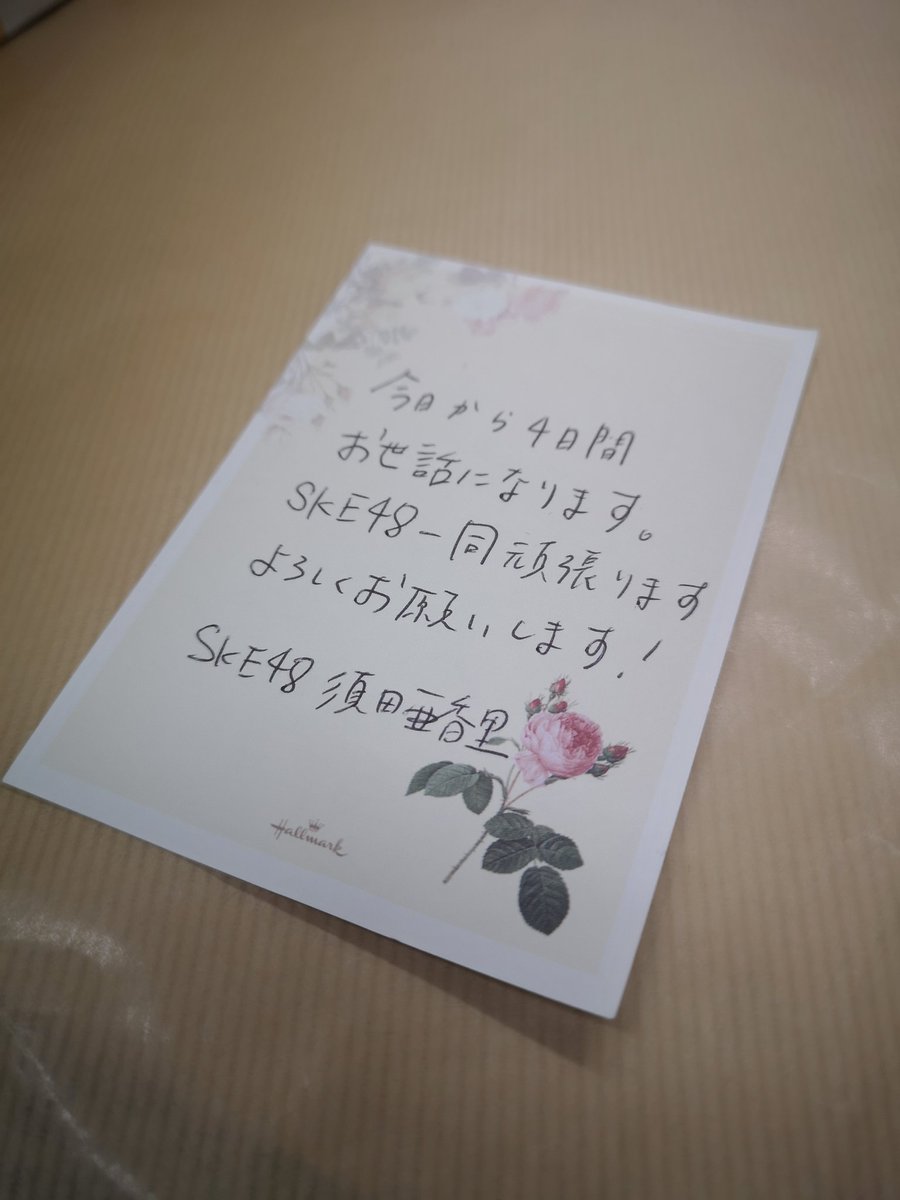 今日から4日間
お世話になります。
SKE48一同頑張ります
よろしくお願いします!
SKE48 須田亜香里
Hallmark